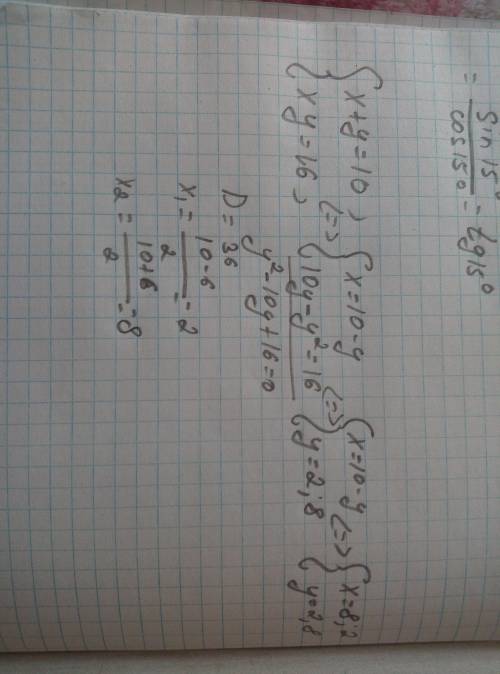 = sin 15° / cos 15° = tg 15°
{ x+y=10 ; <=> { x=10-y <=> { x=10-y <=> { x=8;2
{ xy=16 ; { 10y-y²=16 { y=2;8 { y=2,8
y²-10y+16=0
D= 36
x₁ = 10-6 / 2 = 2
x₂ = 10+6 / 2 = 8